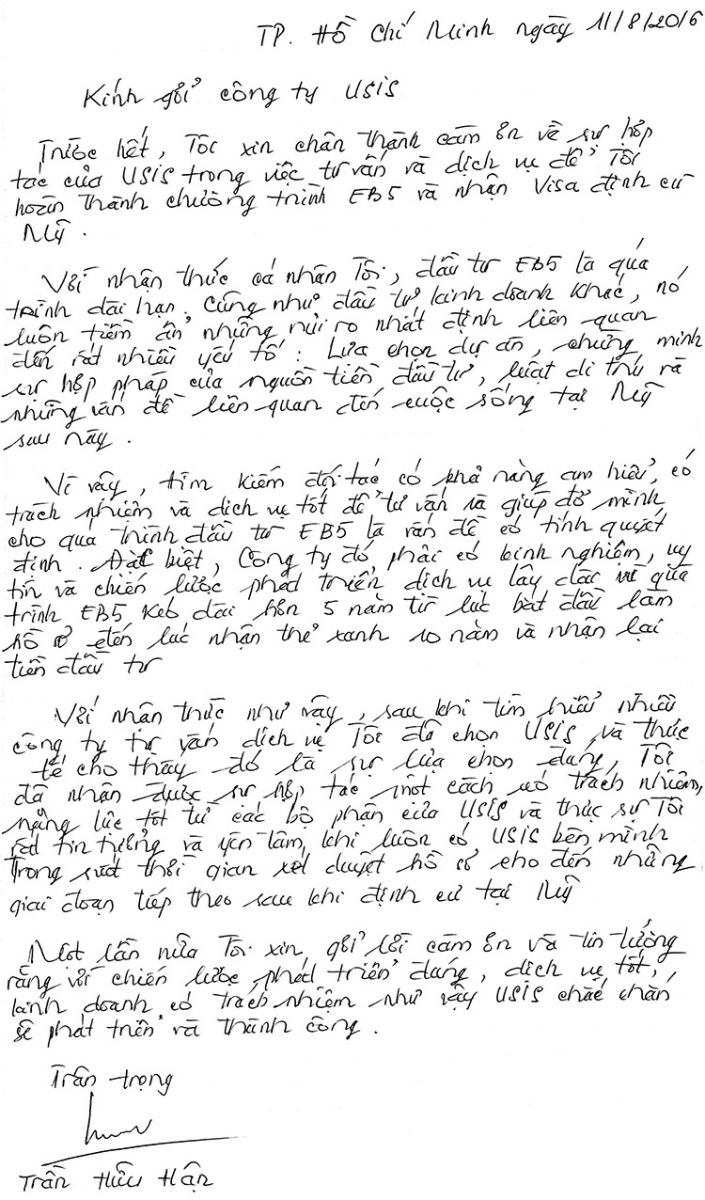 TP. Hồ Chí Minh ngày 11/8/2016
Kính gởi công ty USIS
Trước hết, Tôi xin chân thành cảm ơn về sự hợp
tác của USIS trong việc tư vấn và dịch vụ để Tôi
hoàn thành chương trình EB5 và nhận Visa định cư
Mỹ.
Với nhận thức cá nhân Tôi, đầu tư EB5 là quá
trình dài hạn. Cũng như đầu tư kinh doanh khác, nó
luôn tiềm ẩn những rủi ro nhất định liên quan
đến rất nhiều yếu tố: Lựa chọn dự án, chứng minh
sự hợp pháp của nguồn tiền đầu tư, luật di trú và
những vấn đề liên quan đến cuộc sống tại Mỹ
sau này.
Vì vậy, tìm kiếm đối tác có khả năng am hiểu, có
trách nhiệm và dịch vụ tốt để tư vấn và giúp đở mình
cho quá trình đầu tư EB5 là vấn đề có tính quyết
định. Đặc biệt, Công ty đó phải có kinh nghiệm, uy
tín và chiến lược phát triển dịch vụ lâu dài vì quá
trình EB5 kéo dài hơn 5 năm từ lúc bắt đầu làm
hồ sơ đến lúc nhận thẻ xanh 10 năm và nhận lại
tiền đầu tư
Với nhận thức như vậy, sau khi tìm hiểu nhiều
công ty tư vấn dịch vụ Tôi đã chọn USIS và thực
tế cho thấy đó là sự lựa chọn đúng, Tôi
đã nhận được sự hợp tác một cách có trách nhiệm,
năng lực tốt từ các bộ phận của USIS và thực sự Tôi
rất tin tưởng và yên tâm, khi luôn có USIS bên mình
trong suốt thời gian xét duyệt hồ sơ cho đến những
giai đoạn tiếp theo sau khi định cư tại Mỹ
Một lần nữa Tôi xin gởi lời cảm ơn và tin tưởng
rằng với chiến lược phát triển đúng, dịch vụ tốt,
kinh doanh có trách nhiệm như vậy USIS chắc chắn
sẽ phát triển và thành công.
Trân trọng
Trần Hữu Hận